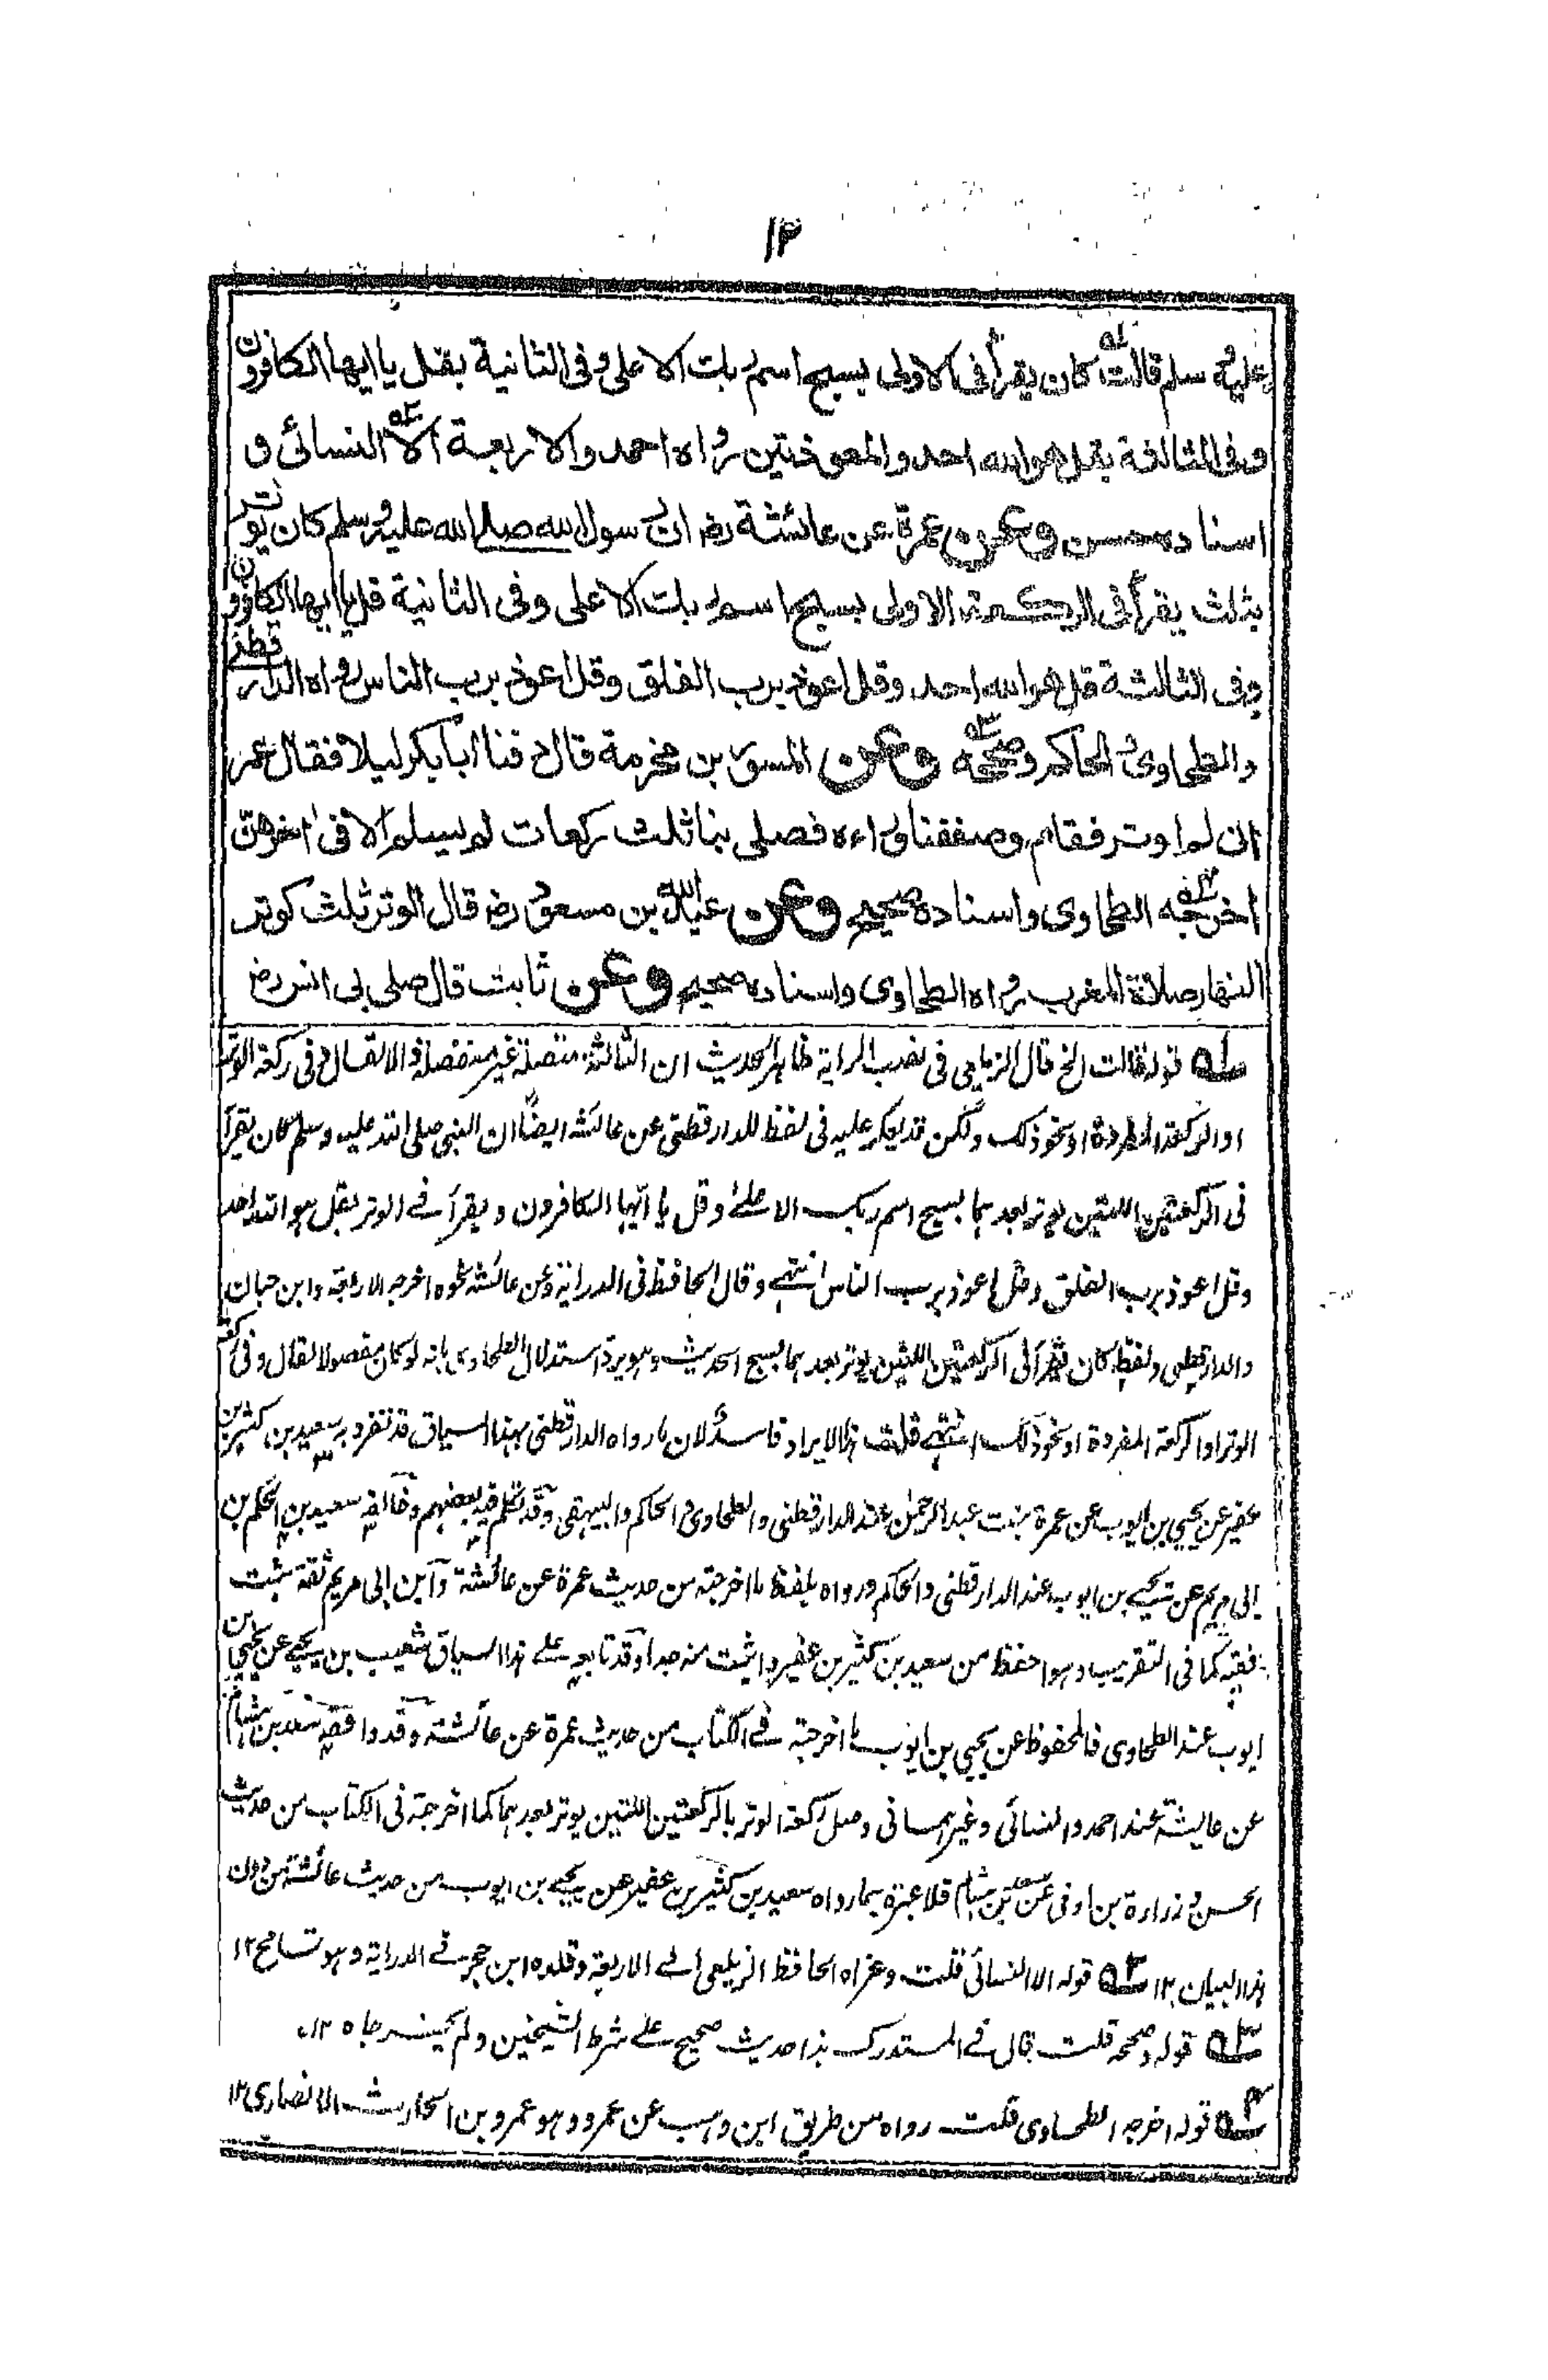 ١٣
عليه وسلم قالت كان يقرأ فى الاولى بسبح اسم ربك الاعلى وفى الثانية بقل يا ايها الكافرون
وفى الثالثة بقل هو الله احد والمعوذتين رواه احمد والاربعة الا النسائى و
اسناده حسن وعن عمرة عن عائشة رضـ ان رسول الله صلى الله عليه وسلم كان يوتر
بثلث يقرأ فى الركعة الاولى بسبح اسم ربك الاعلى وفى الثانية قل يا ايها الكافرون
وفى الثالثة قل هو الله احد وقل اعوذ برب الفلق وقل اعوذ برب الناس رواه الدارقطنى
والطحاوى والحاكم وصححه وعن المسور بن مخرمة قال دفنا ابا بكر ليلا فقال عمر
انى لم اوتر فقام وصففنا وراءه فصلى بنا ثلث ركعات لم يسلم الا فى اخرهن
اخرجه الطحاوى واسناده صحيح وعن عبد الله بن مسعود رضـ قال الوتر ثلث كوتر
النهار صلاة المغرب رواه الطحاوى واسناده صحيح وعن ثابت قال صلى بى انس رضـ
١ـه قوله قالت الخ قال الزيلعى فى نصب الراية ظاهر الحديث ان الثالثة متصلة غير منفصلة والا لقال وفى ركعة الوتر
او الركعة المفردة او نحو ذلك ولكن قد يعكر عليه فى لفظ للدارقطنى عن عائشة ايضا ان النبى صلى الله عليه وسلم كان يقرأ
فى الركعتين اللتين يوتر بعدهما بسبح اسم ربك الاعلى وقل يا ايها الكافرون ويقرأ فى الوتر بقل هو الله احد
وقل اعوذ برب الفلق وقل اعوذ برب الناس انتهى وقال الحافظ فى الدراية وعن عائشة نحوه اخرجه الاربعة وابن حبان
والدارقطنى ولفظه كان يقرأ فى الركعتين اللتين يوتر بعدهما بسبح الحديث وهو يرد استدلال الطحاوى بانه لو كان مفصولا لقال وفى ركعة
الوتر او الركعة المفردة او نحو ذلك انتهى قلت هذا الايراد فاسد لان ما رواه الدارقطنى بهذا السياق قد تفرد به سعيد بن كثير بن
عفير عن يحيى بن ايوب عن عمرة بنت عبد الرحمن عند الدارقطنى والطحاوى والحاكم والبيهقى وقد تكلم فيه بعضهم وخالفه سعيد بن الحكم بن
ابى مريم عن يحيى بن ايوب عند الدارقطنى والحاكم ورواه بلفظ ما اخرجته من حديث عمرة عن عائشة وابن ابى مريم ثقة ثبت
فقيه كما فى التقريب وهو احفظ من سعيد بن كثير بن عفير واثبت منه جدا وقد تابعه على هذا السياق شعيب بن يحيى عن يحيى بن
ايوب عند الطحاوى فالمحفوظ عن يحيى بن ايوب ما اخرجته فى الكتاب من حديث عمرة عن عائشة وقد وافقه سعد بن هشام
عن عايشة عند احمد والنسائى وغيرهما فى وصل ركعة الوتر بالركعتين اللتين يوتر بعدهما كما اخرجته فى الكتاب من حديث
الحسن وزرارة بن اوفى عن سعد بن هشام فلا عبرة بما رواه سعيد بن كثير بن عفير عن يحيى بن ايوب من حديث عائشة من دون
هذا البيان ١٢ ٢ـه قوله الا النسائى قلت وعزاه الحافظ الزيلعى الى الاربعة وقلده ابن حجر فى الدراية وهو تسامح ١٢
٣ـه قوله وصححه قلت قال فى المستدرك هذا حديث صحيح على شرط الشيخين ولم يخرجاه ١٢
٤ـه قوله اخرجه الطحاوى قلت رواه من طريق ابن وهب عن عمرو وهو عمرو بن الحارث الانصارى ١٢